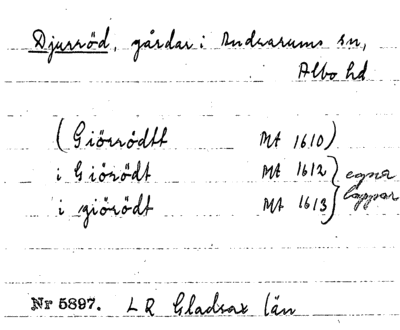 Djurröd, gårdar i Andrarums sn,
Albo hd
(Giörrödtt Mt 1610)
i Giörödt Mt 1612 } egna
i giörödt Mt 1613 } lappar
Nr 5897. LR Gladsax län